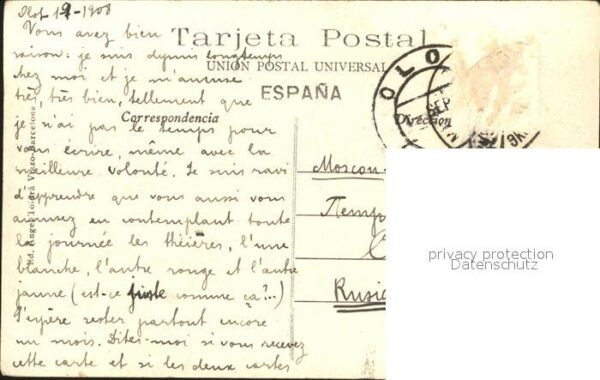 Olot 19-1908
Vous avez bien
raison: je suis depuis longtemps
chez moi et je m'amuse
très, très bien, tellement que
je n'ai pas le temps pour
vous écrire, même avec la
meilleure volonté. Je suis ravi
d'apprendre que vous aussi vous
amusez en contemplant toute
la journée les théières, l'une
blanche, l'autre rouge et l'autre
jaune (est-ce juste comme ça?...)
J'espère rester partout encore
un mois. Dites-moi si vous recevez
cette carte et si les deux cartes
Tarjeta Postal
UNIÓN POSTAL UNIVERSAL
ESPAÑA
Correspondencia
Dirección
OLO
SEP
Moscou
Петр
Rusi
privacy protection
Datenschutz